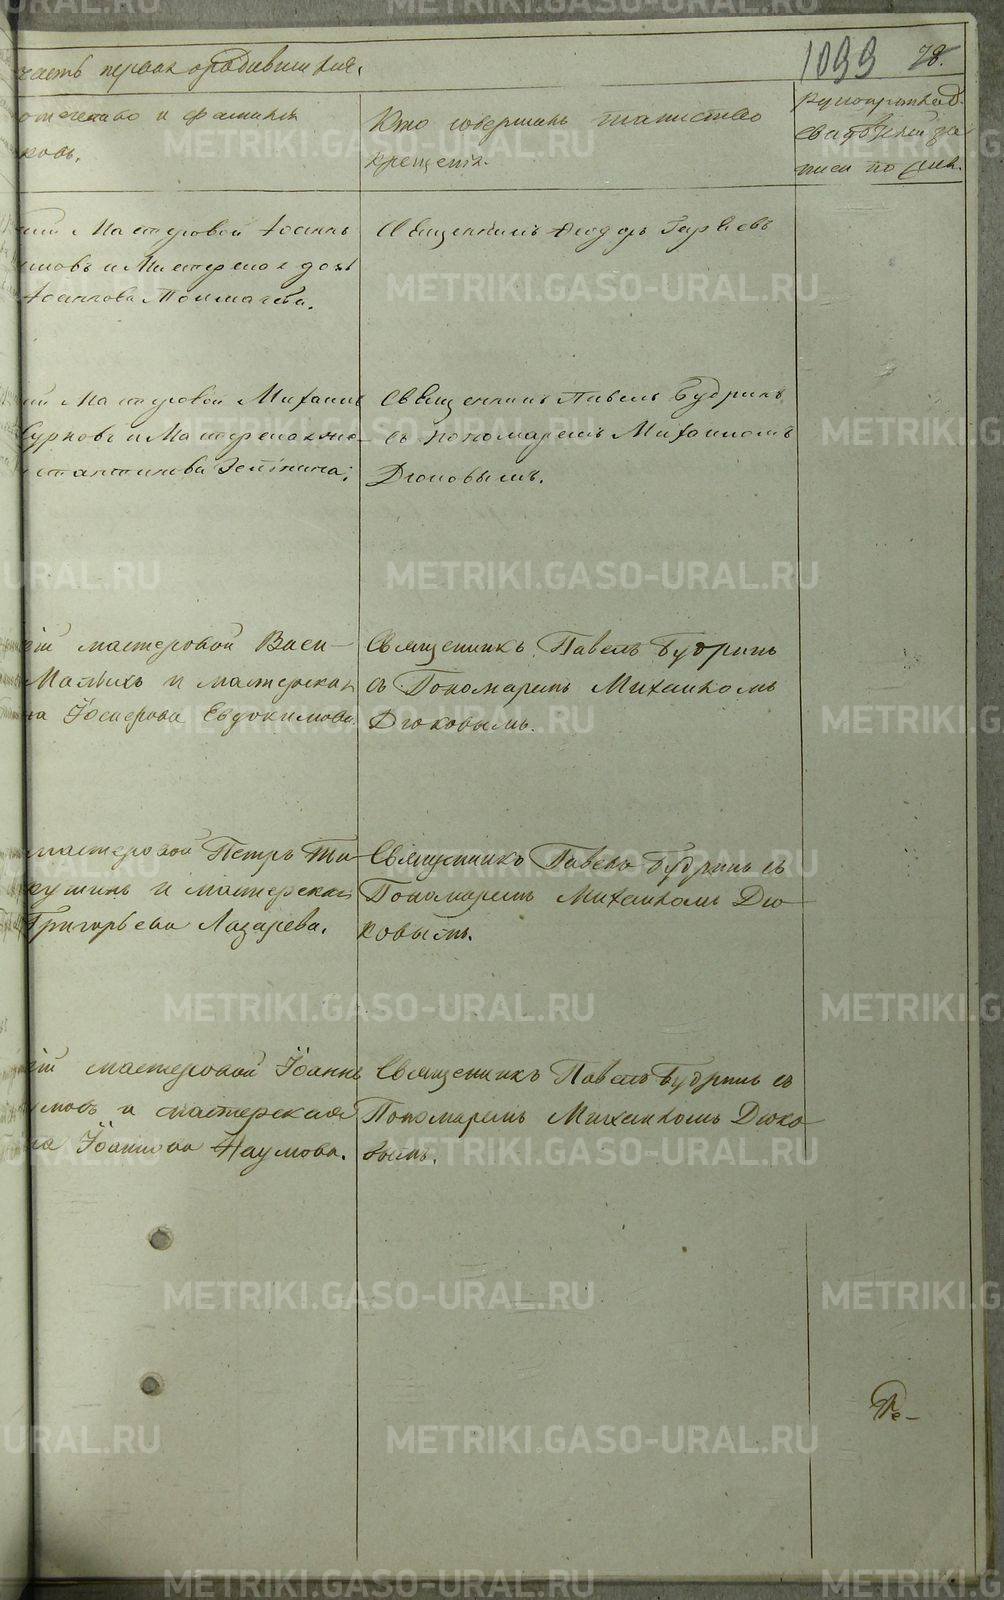 часть первая о родившихся.
1099 78.
отчество и фамилия
ковъ.
Кто совершалъ таинство
крещенія.
Рукоприклад
ство
писи по
Мастеровой Іоаннъ
мовъ и Мастерская дочь
Іоаннова
Священникъ Ѳеодоръ
Мастеровой Михаилъ
и Мастерская
стантинова
Священникъ Павелъ Будринъ
съ пономаремъ Михаиломъ
Дюковымъ.
мастеровой Васи-
Малыхъ и мастерская
на Іосифова Евдокимова.
Священникъ Павелъ Будринъ
съ Пономаремъ Михаиломъ
Дюковымъ.
мастеровой Петръ Ти-
кушинъ и мастерская
Григорьева Лазарева.
Священникъ Павелъ Будринъ съ
Пономаремъ Михаиломъ Дю-
ковымъ.
мастеровой Іоаннъ
умовъ и мастерская
на Іоаннова Наумова.
Священникъ Павелъ Будринъ съ
Пономаремъ Михаиломъ Дюко-
вымъ.
METRIKI.GASO-URAL.RU